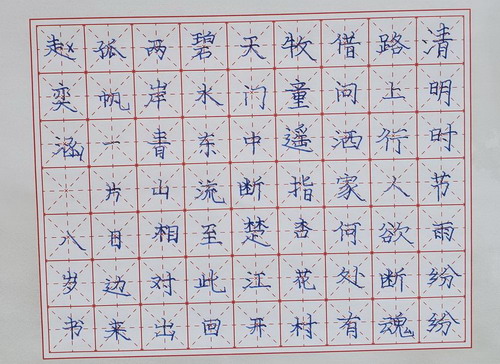 清明时节雨纷纷
路上行人欲断魂
借问洒家何处有
牧童遥指杏花村
天门中断楚江开
碧水东流至此回
两岸青山相对出
孤帆一片日边来
赵奕涵 八岁书